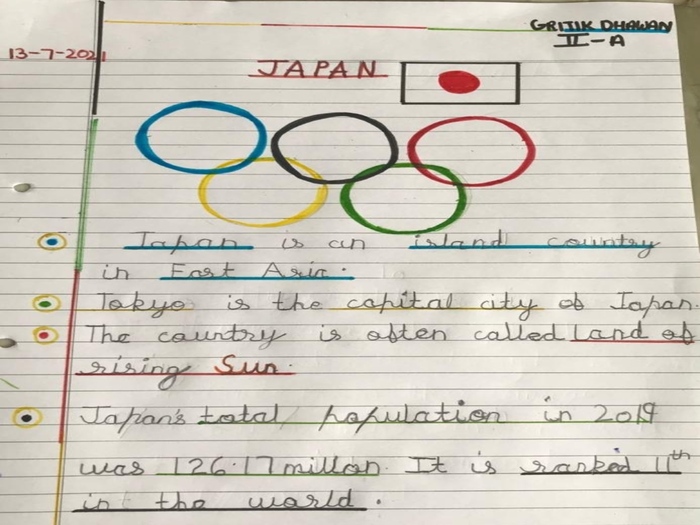 GRITIK DHAWAN
II-A
13-7-2021
JAPAN
Japan is an island country
in East Asia.
Tokyo is the capital city of Japan
The country is often called Land of
rising Sun.
Japan's total population in 2019
was 126.17 millon. It is ranked 11th
in the world.